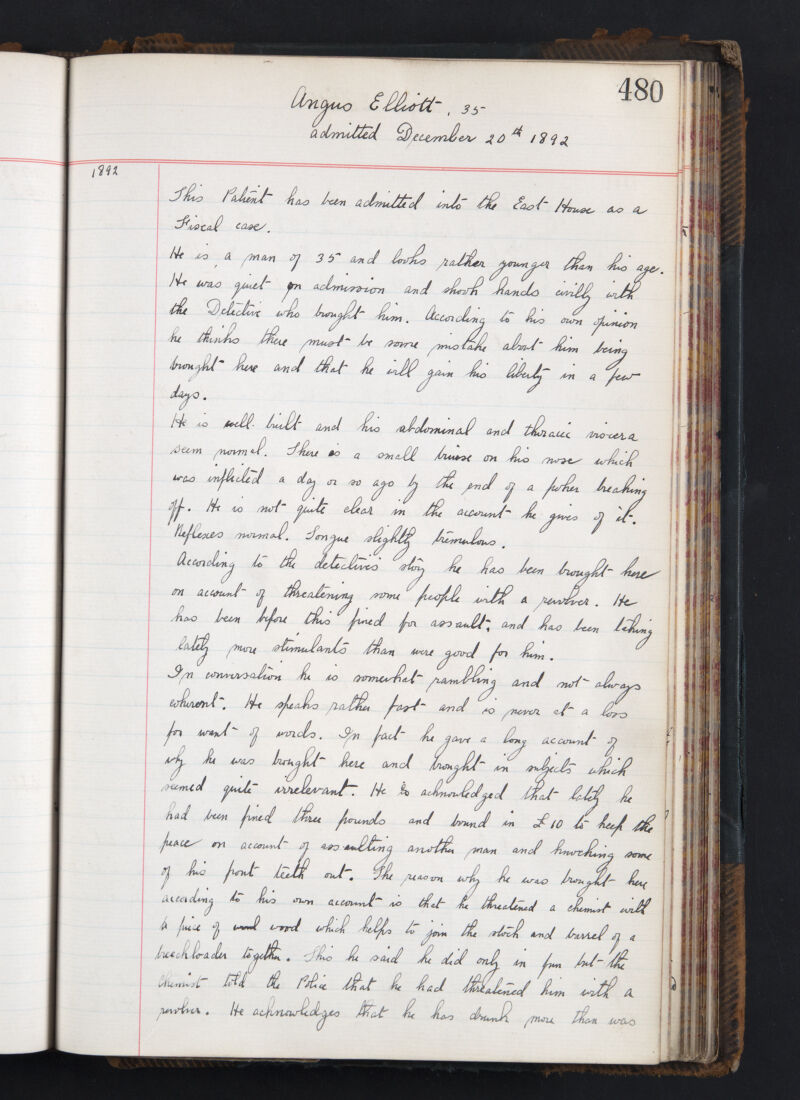 480
Angus Elliott, 35
admitted December 20th 1892
1892
This Patient has been admitted into the East House as a
Fiscal case.
He is a man of 35 and looks rather younger than his age.
He was quiet on admission and shook hands civilly with
the Detective who brought him. According to his own opinion
he thinks there must be some mistake about him being
brought here and that he will gain his liberty in a few
days.
He is well built and his abdominal and thoracic viscera
seem normal. There is a small bruise on his nose which
was inflicted a day or so ago by the end of a poker breaking
off. He is not quite clear in the account he gives of it.
Reflexes normal. Tongue slightly tremulous.
According to the detectives story he has been brought here
on account of threatening some people with a revolver. He
has been before this fined for assault, and has been taking
lately more stimulants than were good for him.
In conversation he is somewhat rambling and not always
coherent. He speaks rather fast and is never at a loss
for want of words. In fact he gave a long account of
why he was brought here and brought in subjects which
seemed quite irrelevant. He acknowledged that lately he
had been fined three pounds and bound in £10 to keep the
peace on account of assaulting another man and knocking some
of his front teeth out. The reason why he was brought here
according to his own account is that he threatened a chemist with
a piece of wood which helps to join the stock and barrel of a
breechloader together. This he said he did only in fun but the
Chemist told the Police that he had threatened him with a
revolver. He acknowledges that he has drunk more than was